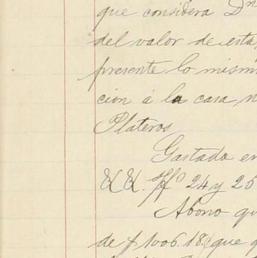 que considera Dn
del valor de esta
presente lo mism
cion á la casa n
Plateros
Gastado en
&&. ffº 24 y 25
Abono qu
de $ 1006.18 que q